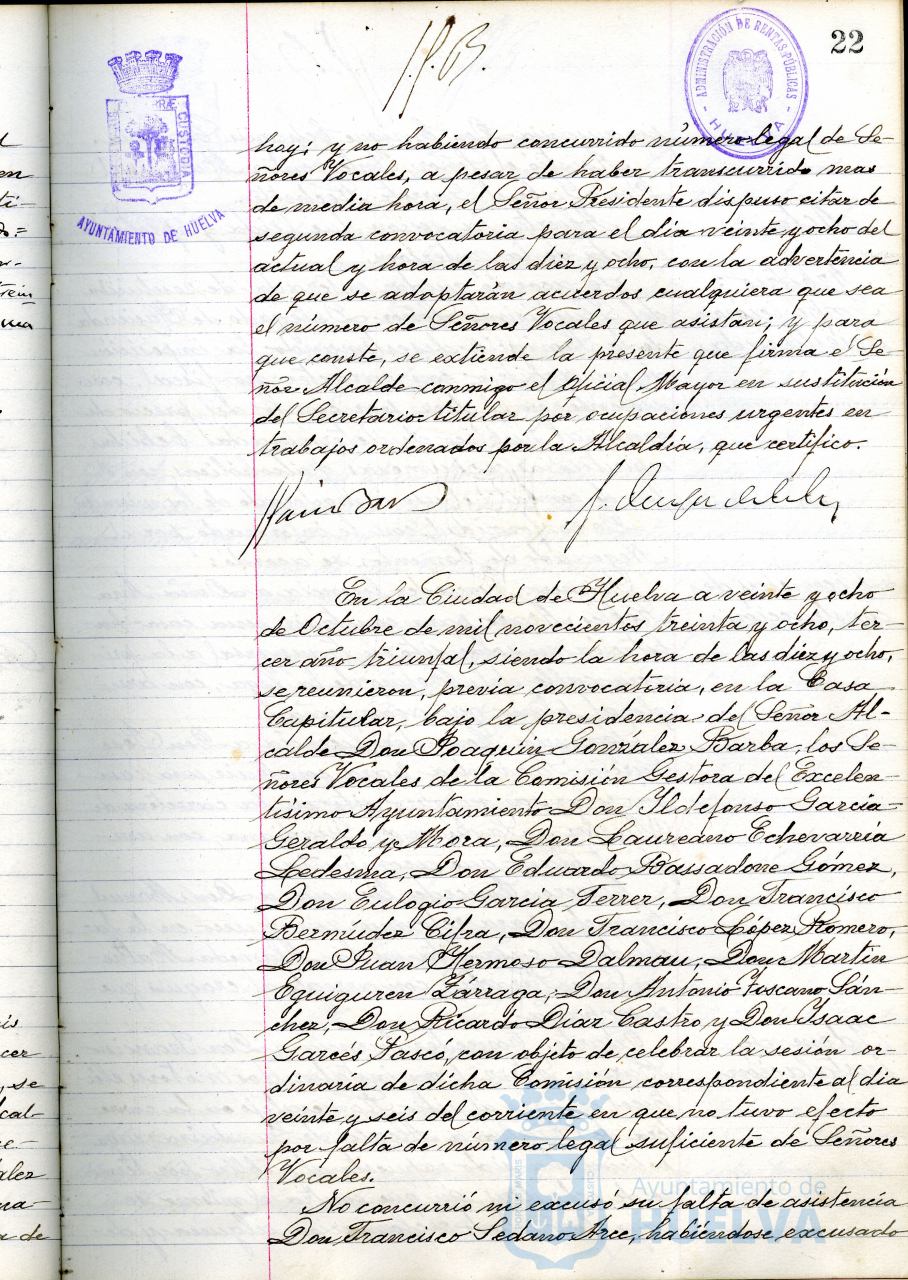 22
ADMINISTRACIÓN DE RENTAS PÚBLICAS
HUELVA
CUSTODIA
AYUNTAMIENTO DE HUELVA
hoy; y no habiendo concurrido número legal de Se-
ñores Vocales, a pesar de haber transcurrido mas
de media hora, el Señor Presidente dispuso citar de
segunda convocatoria para el día veinte y ocho del
actual y hora de las diez y ocho, con la advertencia
de que se adoptarán acuerdos cualquiera que sea
el número de Señores Vocales que asistan; y para
que conste, se extiende la presente que firma el Se-
ñor Alcalde conmigo el Oficial Mayor en sustitución
del Secretario titular por ocupaciones urgentes en
trabajos ordenados por la Alcaldía, que certifico.
En la Ciudad de Huelva a veinte y ocho
de Octubre de mil novecientos treinta y ocho, ter-
cer año triunfal, siendo la hora de las diez y ocho,
se reunieron, previa convocatoria, en la Casa
Capitular, bajo la presidencia del Señor Al-
calde Don Joaquín González Barba, los Se-
ñores Vocales de la Comisión Gestora del Excelen-
tísimo Ayuntamiento Don Ildefonso García
Geraldo y Mora, Don Laureano Echevarría
Ledesma, Don Eduardo Bassadone Gómez,
Don Eulogio García Ferrer, Don Francisco
Bermudez Cifra, Don Francisco López Romero,
Don Juan Hermoso Dalmau, Don Martín
Eguiguren Zárraga, Don Antonio Toscano Sán-
chez, Don Ricardo Díaz Castro y Don Isaac
Garcés Pascó, con objeto de celebrar la sesión or-
dinaria de dicha Comisión correspondiente al día
veinte y seis del corriente en que no tuvo efecto
por falta de número legal suficiente de Señores
Vocales.
No concurrió ni excusó su falta de asistencia
Don Francisco Sedano Arce, habiéndose excusado
Ayuntamiento de
HUELVA